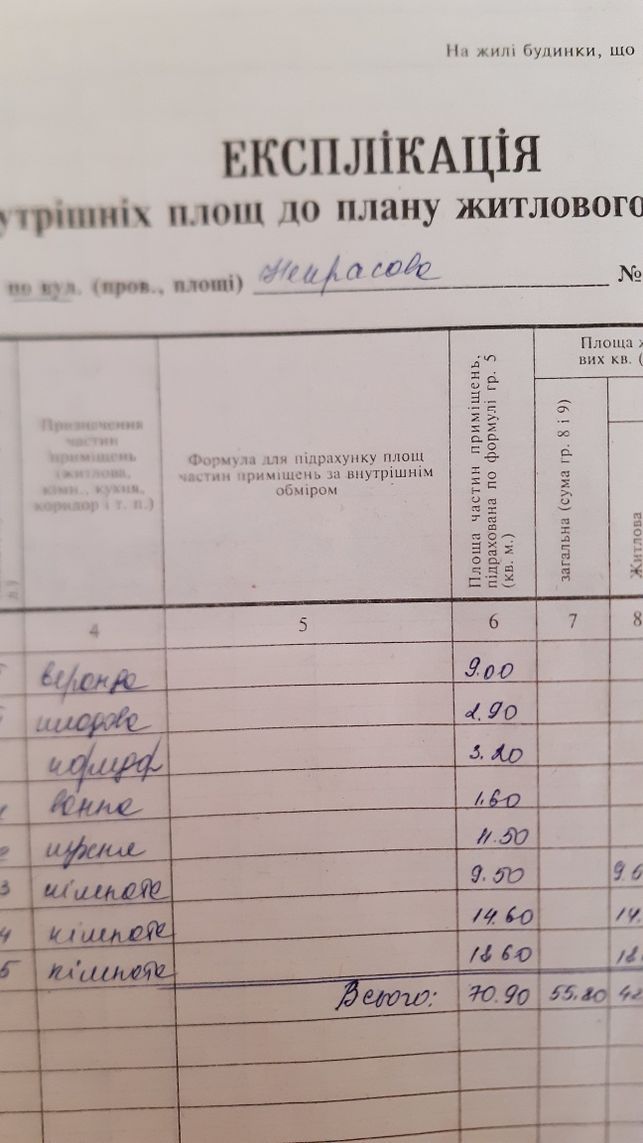 На жилі будинки, що
ЕКСПЛІКАЦІЯ
утрішніх площ до плану житлового
по вул. (пров., площі) Некрасова №
Призначення
частин
приміщень
(житлова,
кімн., кухня,
коридор і т. п.)
Формула для підрахунку площ
частин приміщень за внутрішнім
обміром
Площа частин приміщень,
підрахована по формулі гр. 5
(кв. м.)
Площа ж
вих кв. (
загальна (сума гр. 8 і 9)
Житлова
4 5 6 7 8
веранда 9.00
кладова 2.90
коридор 3.20
ванна 1.60
кухня 11.50
3 кімната 9.50 9.5
4 кімната 14.60 14.
5 кімната 18.60 18.
Всього: 70.90 55.80 42